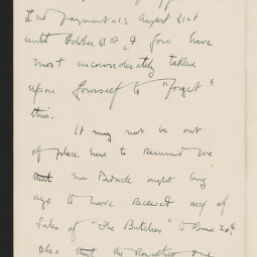 2nd payment is August 31st
until October 31st, & you have
most inconsiderately taken
upon yourself to "forget"
this.
It may not be out
of place here to remind
that Mr ought long
ago to have received acc of
Sales of "The Butcher" to June 30th
also that the Royalties due